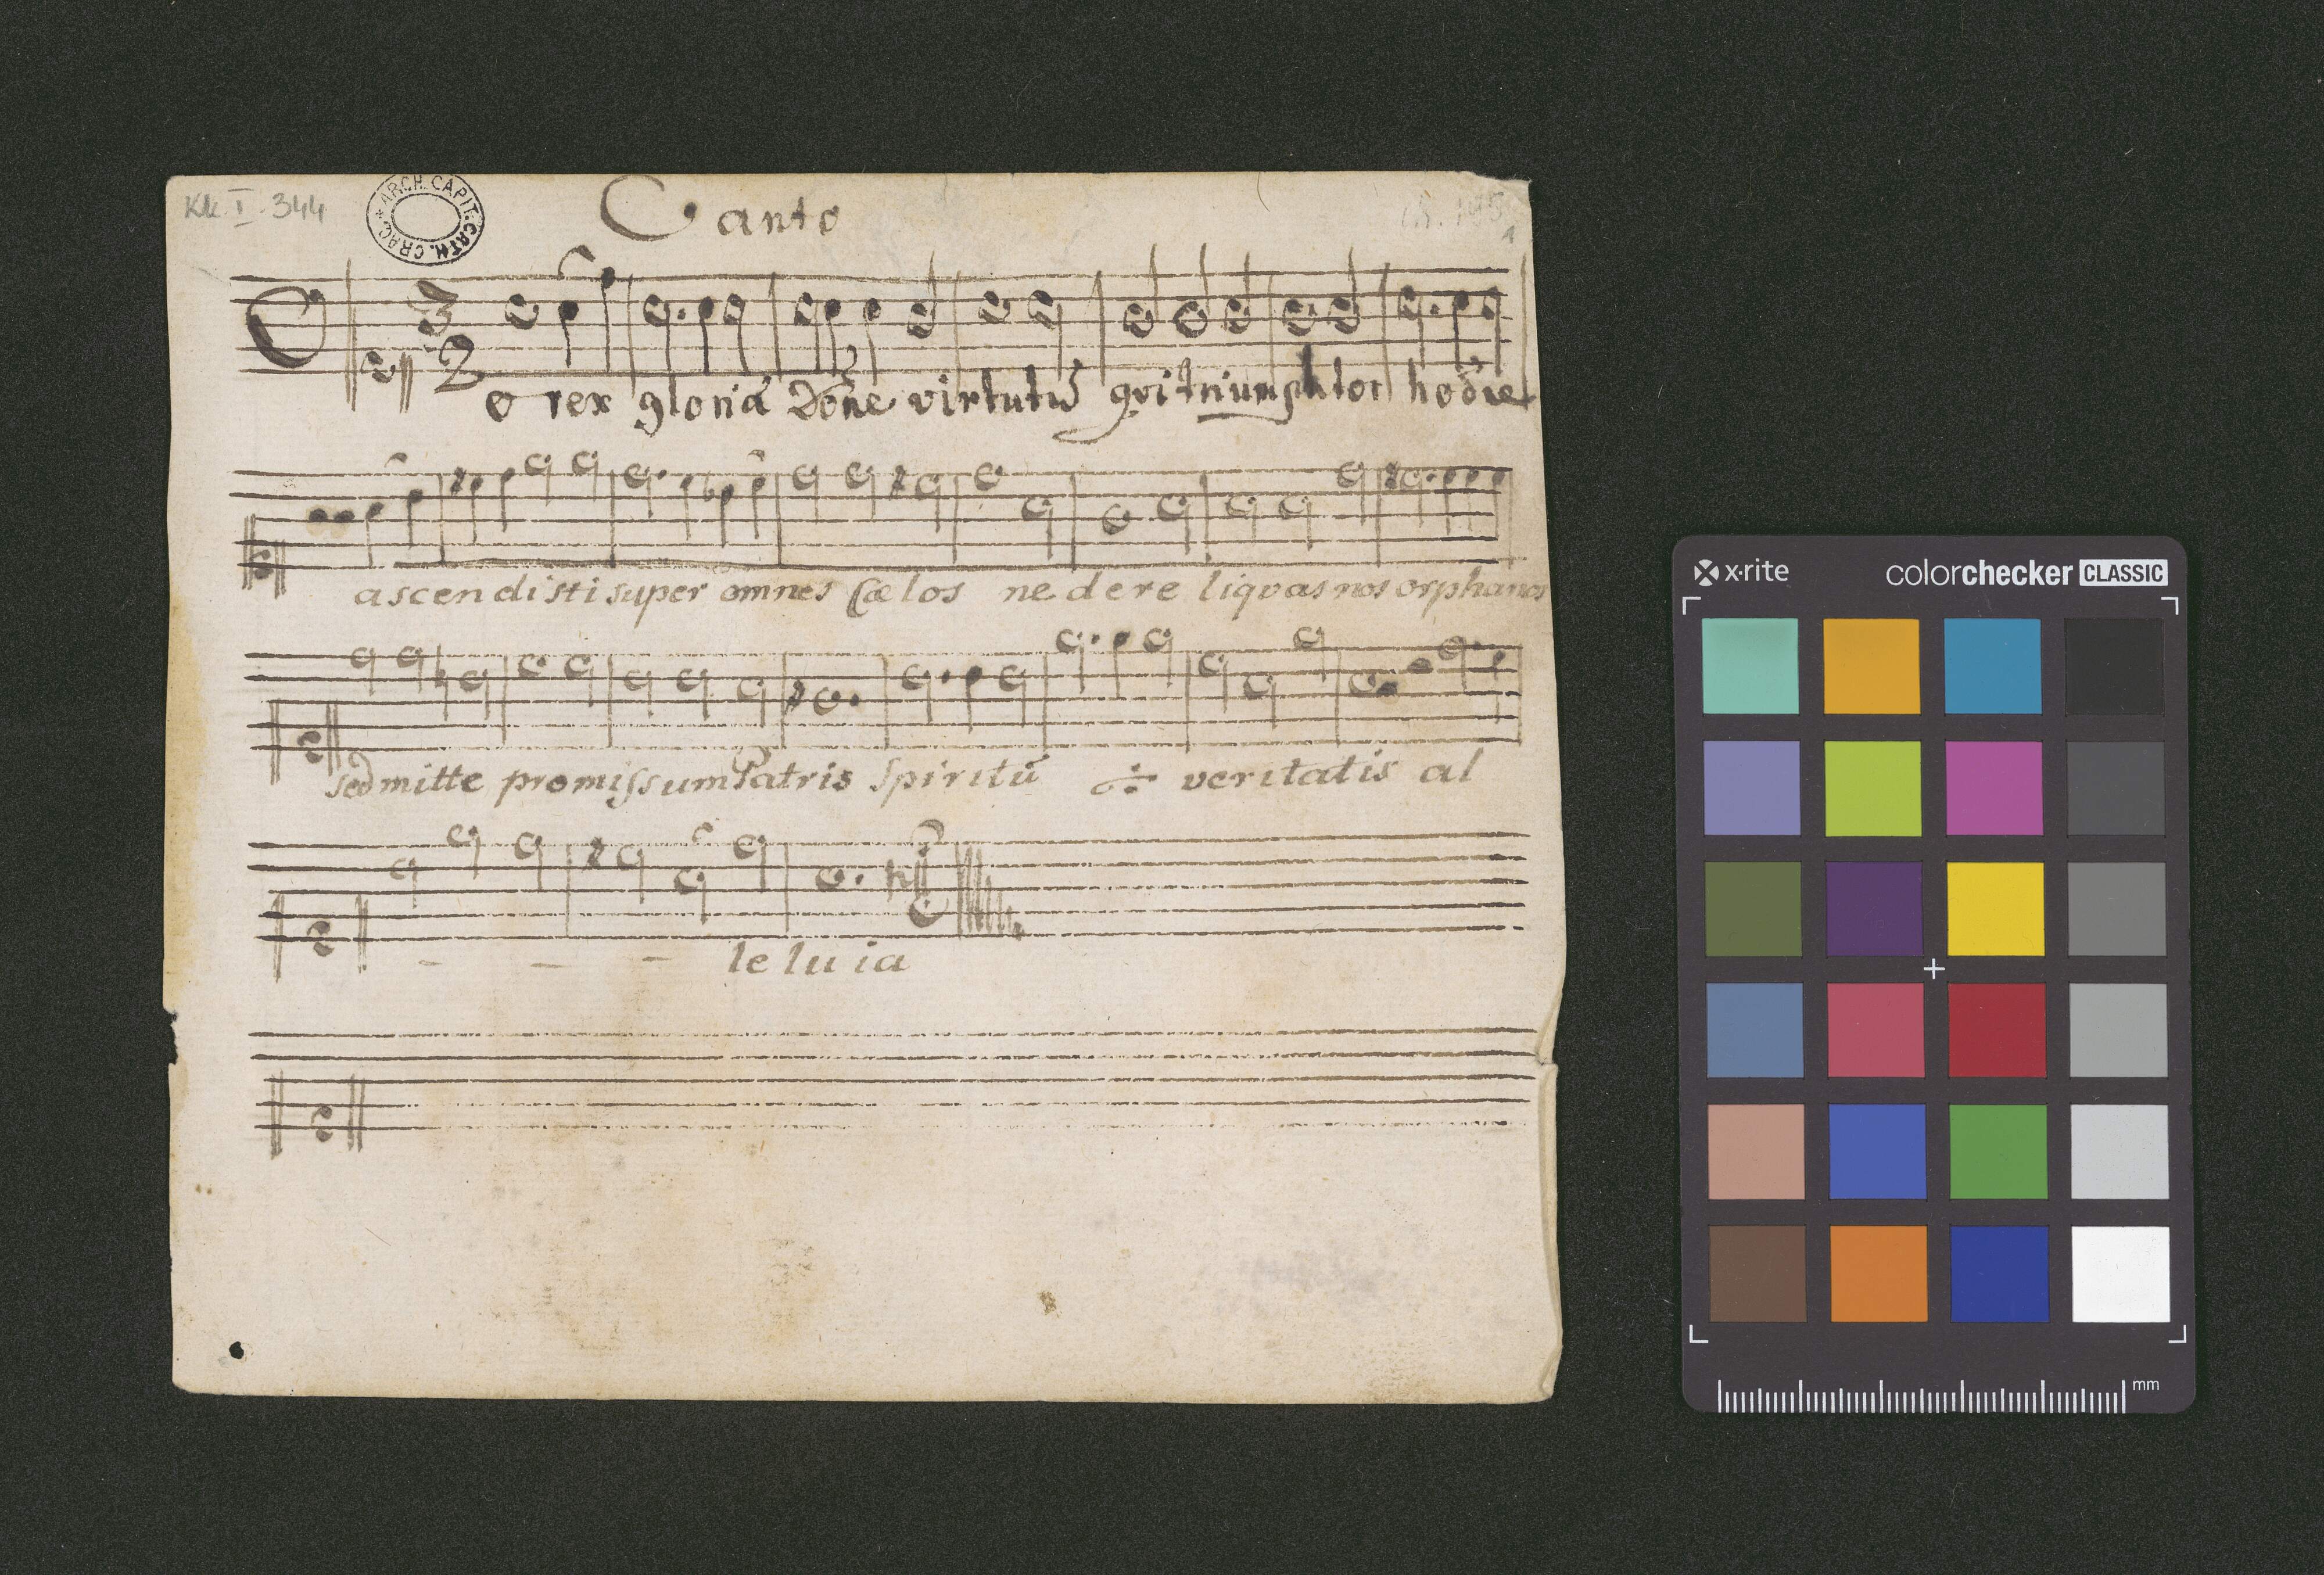 Kk. I. 344
ARCH. CAPIT. CATH. CRAC.
Canto
1
3
2
o rex gloriá Dõne virtutũ qvi triumphtor hodie
ascendisti super omnes Cœlos ne dere liqvas nos orphanos
sed mitte promissum Patris Spiritũ veritatis al
le lu ia
x-rite
colorchecker CLASSIC
mm